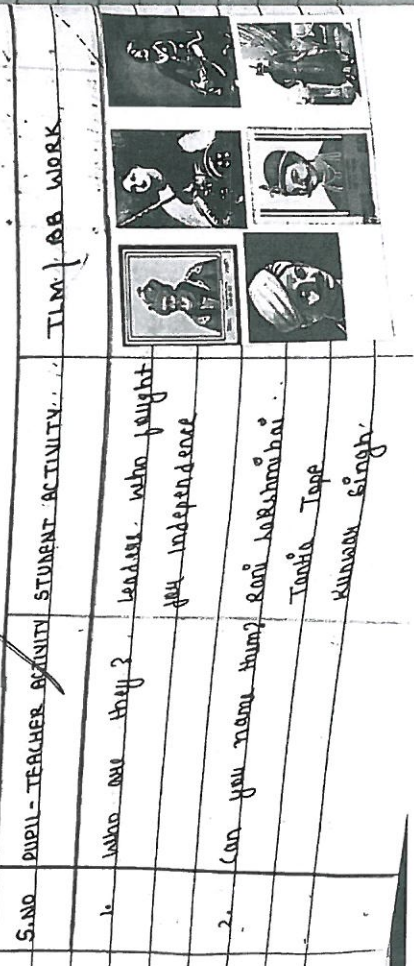 S.NO PUPIL-TEACHER ACTIVITY STUDENT ACTIVITY TLM / BB WORK
1. Who are they? Leaders who fought
for independence
2. Can you name them? Rani Lakshmibai
Tantia Tope
Kunwar Singh